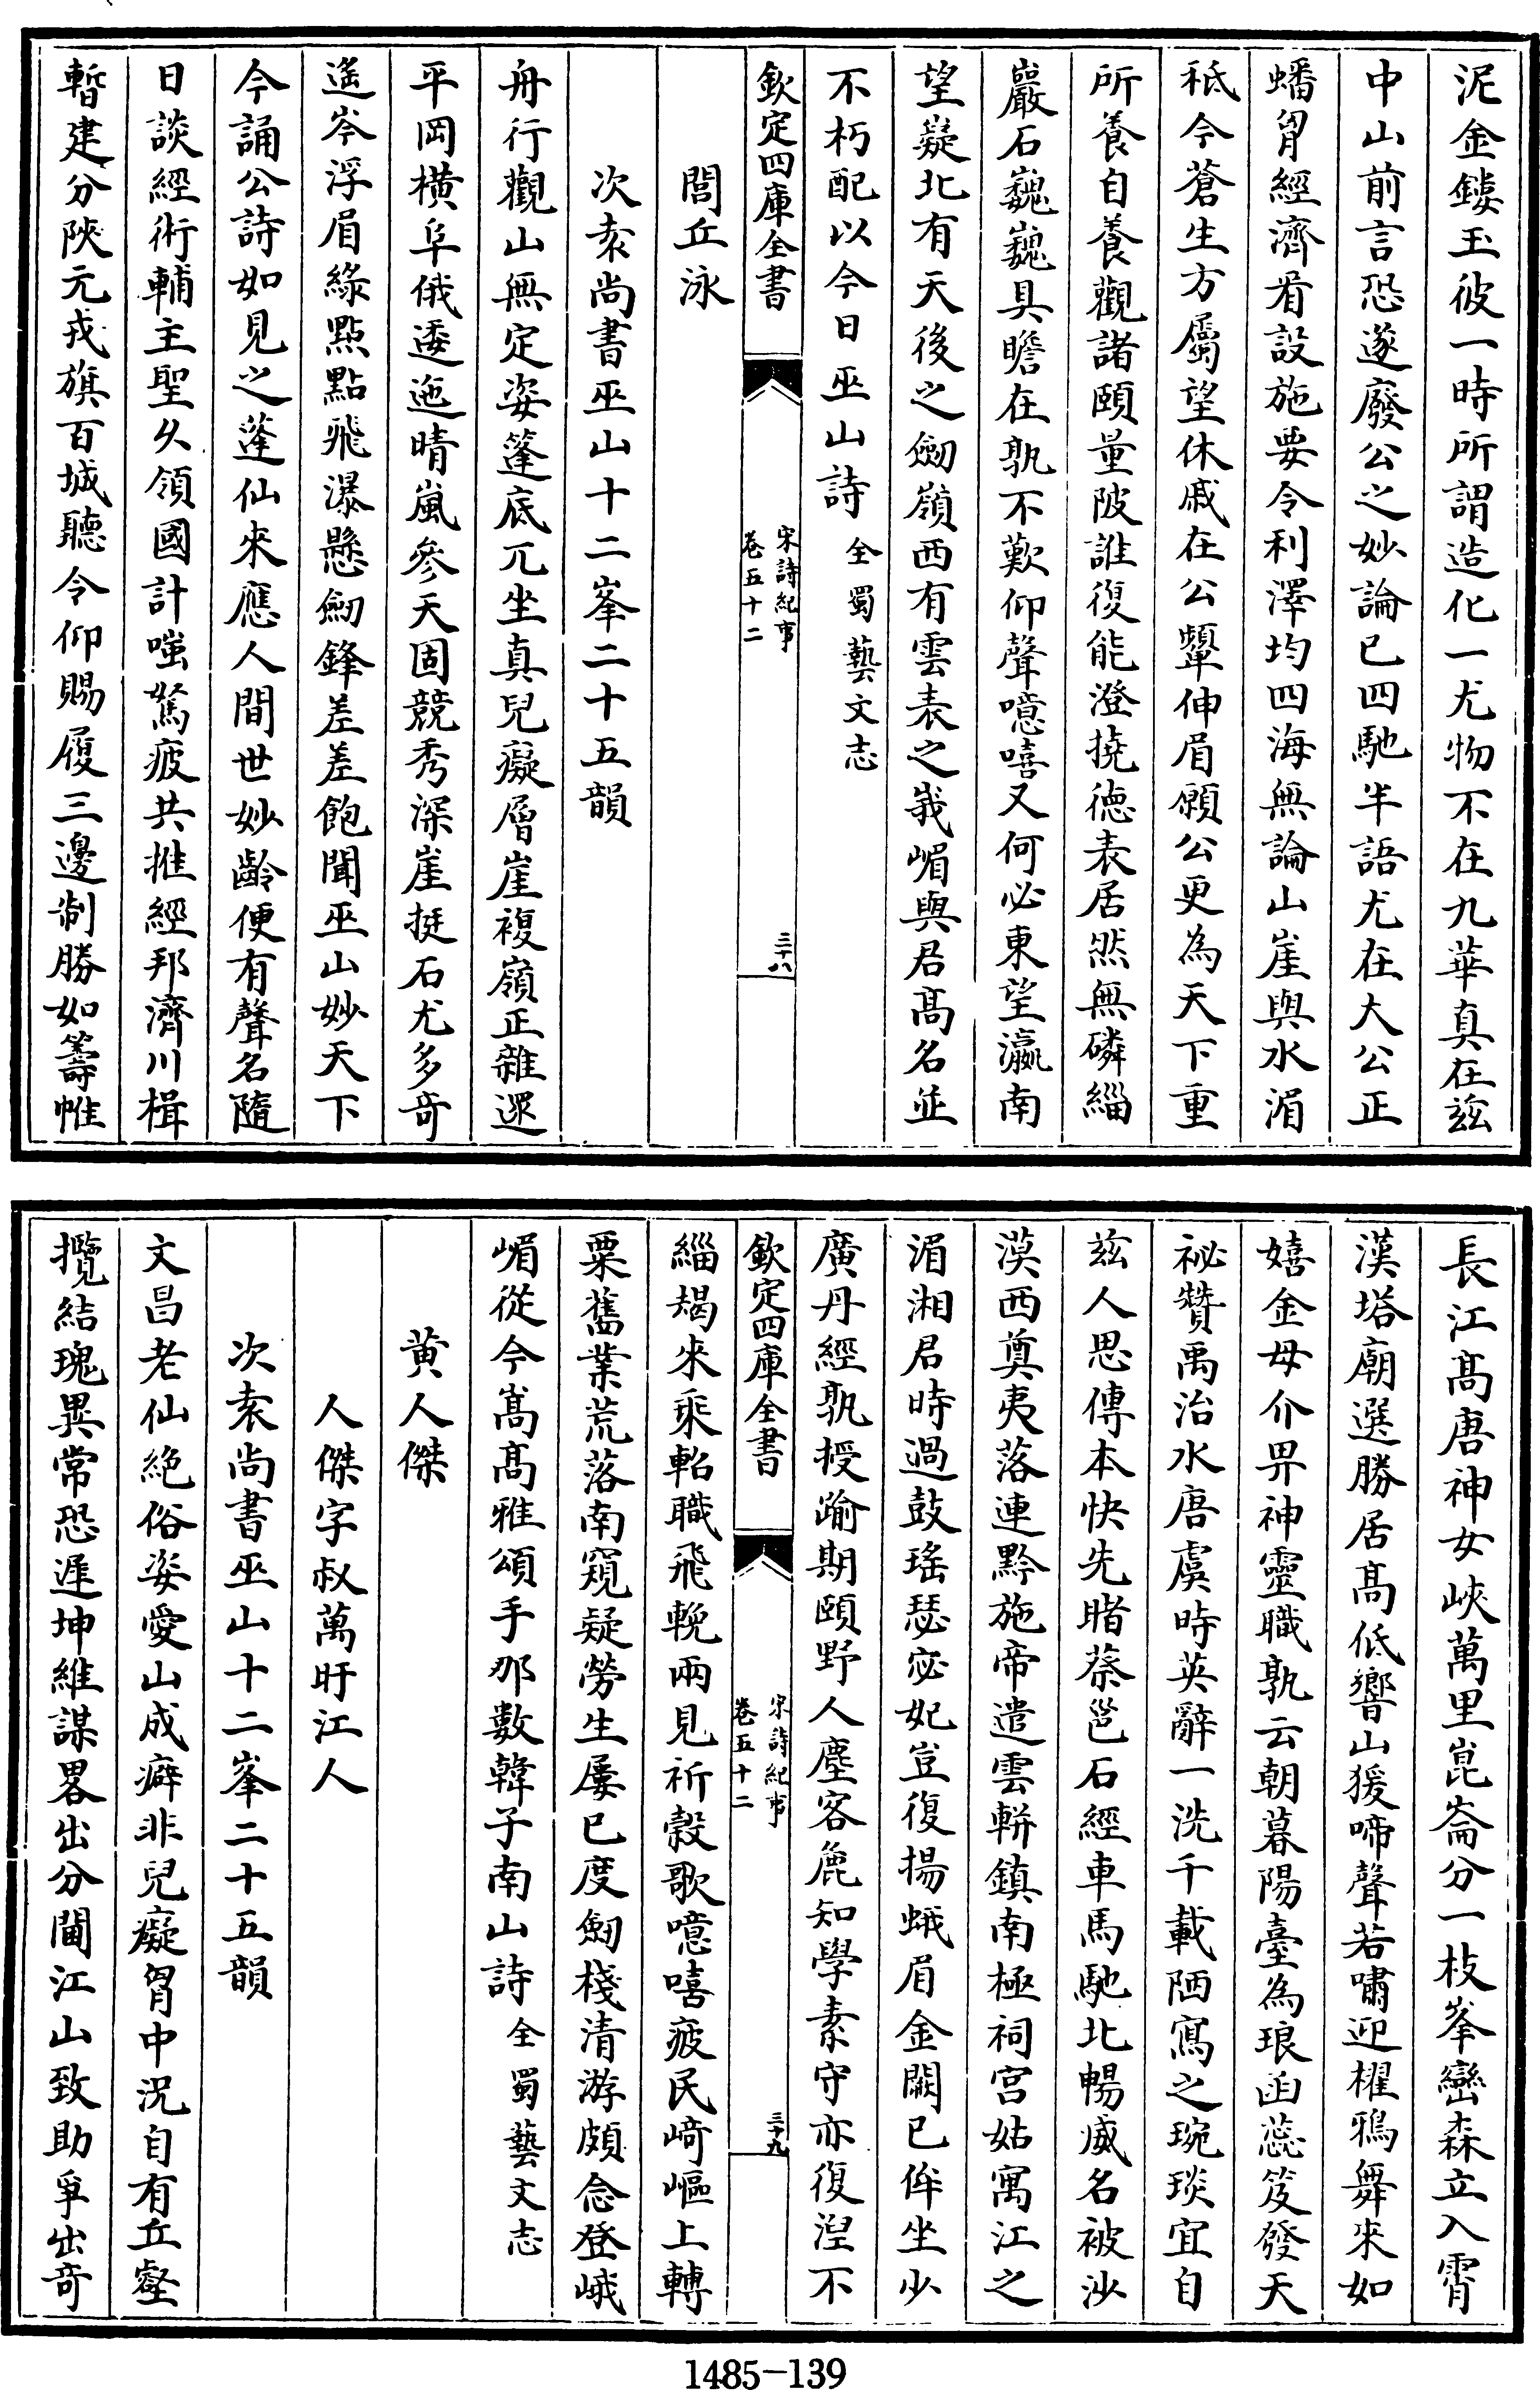 泥金鏤玉彼一時所謂造化一尤物不在九華真在兹
中山前言恐遂廢公之妙論已四馳半語尤在大公正
蟠胷經濟看設施要令利澤均四海無論山崖與水湄
秪今蒼生方屬望休戚在公顰伸眉願公更為天下重
所養自養觀諸頤量陂誰復能澄撓徳表居然無磷緇
巖石巍巍具瞻在孰不歎仰聲噫嘻又何必東望瀛南
望嶷北有天後之劒嶺西有雲表之峩嵋與君髙名並
不朽配以今日巫山詩 全蜀藝文志
欽定四庫全書 宋詩紀事 卷五十二 三十八
閭丘泳
次袁尚書巫山十二峯二十五韻
舟行觀山無定姿篷底兀坐真兒癡層崖複嶺正雜遝
平岡横阜俄逶迤晴嵐參天固競秀深崖挺石尤多竒
遥岑浮眉緑㸃點飛瀑懸劒鋒差差飽聞巫山妙天下
今誦公詩如見之蓬仙來應人間世妙齡便有聲名隨
日談經術輔主聖久領國計嗤駑疲共推經邦濟川楫
暫建分陜元戎旗百城聽令仰賜履三邊制勝如籌帷
長江髙唐神女峽萬里崑崙分一枝峯巒森立入霄
漢塔廟選勝居髙低響山猨啼聲若嘯迎櫂鴉舞來如
嬉金母介畀神靈職孰云朝暮陽臺為琅函蕊笈發天
祕贊禹治水唐虞時英辭一洗千載陋寫之琬琰宜自
兹人思傳本快先睹蔡邕石經車馬馳北暢威名被沙
漠西奠夷落連黔施帝遣雲軿鎮南極祠宫姑寓江之
湄湘君時過鼓瑤瑟宓妃豈復揚蛾眉金闕已侔坐少
廣丹經孰授踰期頤野人塵容麁知學素守亦復涅不
欽定四庫全書 宋詩紀事 卷五十二 三十九
緇朅來乘軺職飛輓兩見祈穀歌噫嘻疲民﨑嶇上轉
粟舊業荒落南窺疑勞生屢已度劒棧清游頗念登峨
嵋從今嵩髙雅頌手那數韓子南山詩 全蜀藝文志
黄人傑
人傑字叔萬盱江人
次袁尚書巫山十二峯二十五韻
文昌老仙絶俗姿愛山成癖非兒癡胷中況自有丘壑
攬結瑰異常恐遲坤維謀畧出分閫江山致助爭出竒
1485-139